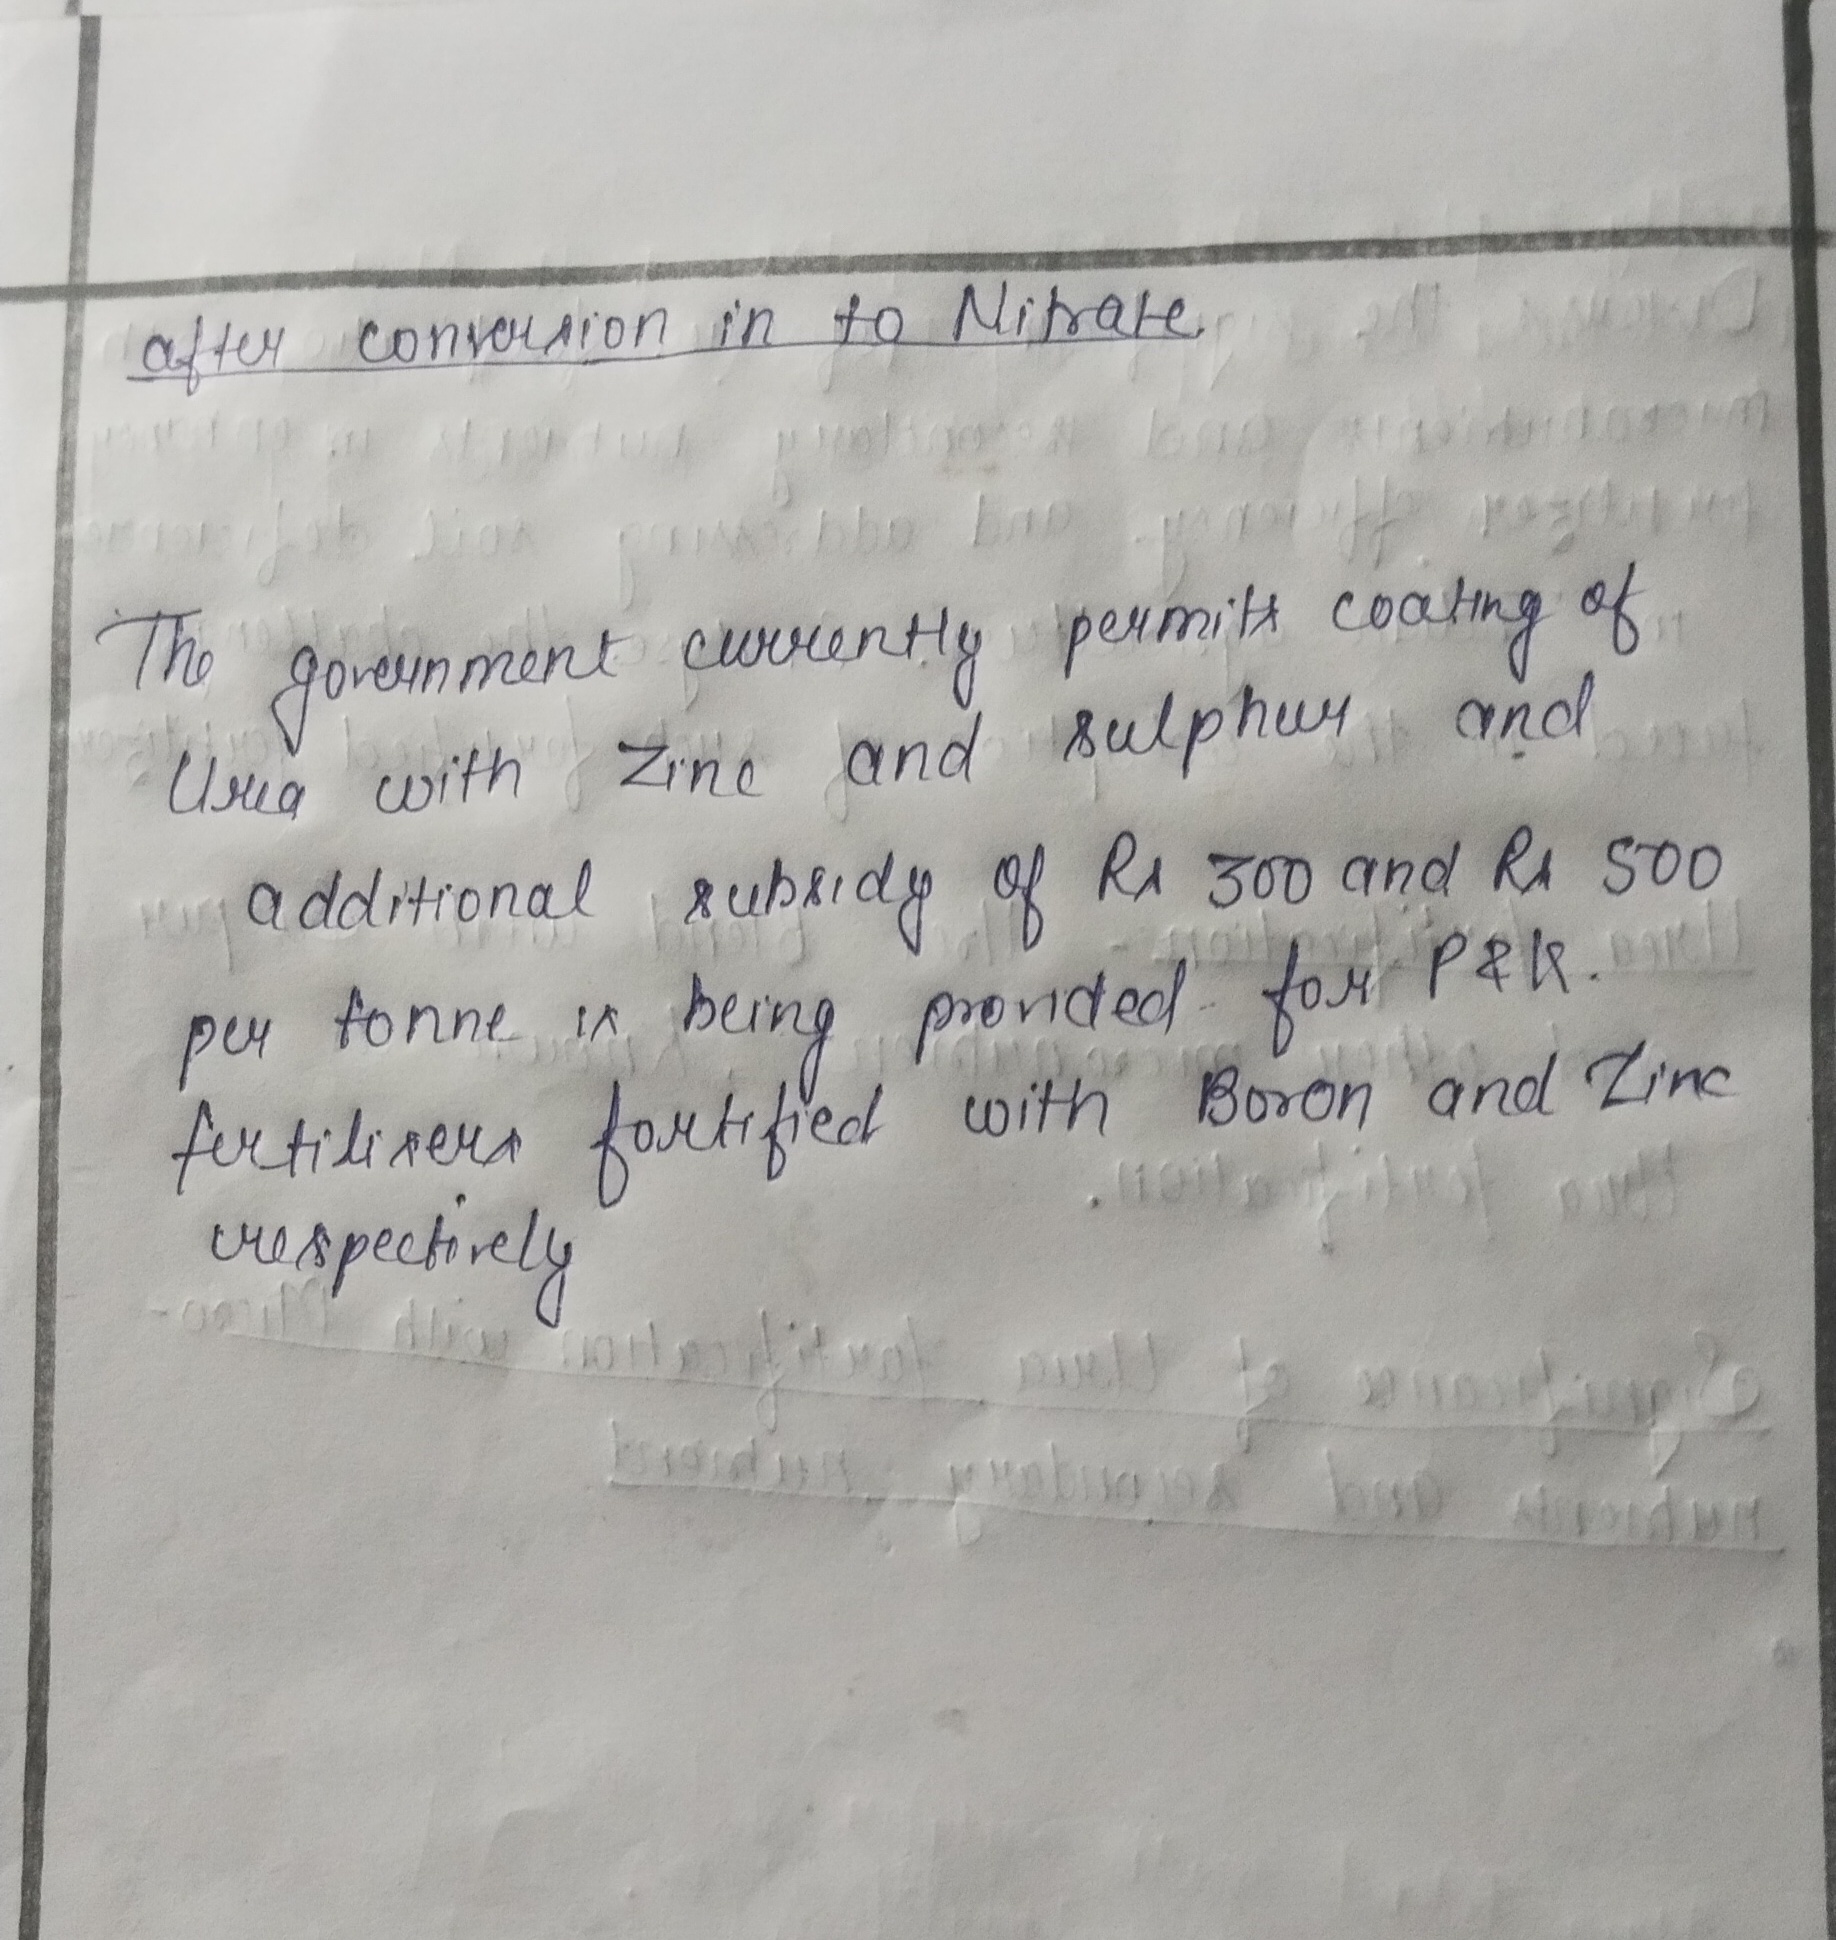 after conversion in to Nitrate.
The government currently permits coating of
Urea with Zinc and sulphur and
additional subsidy of Rs 300 and Rs 500
per tonne is being provided for P & K.
fertilisers fortified with Boron and Zinc
respectively